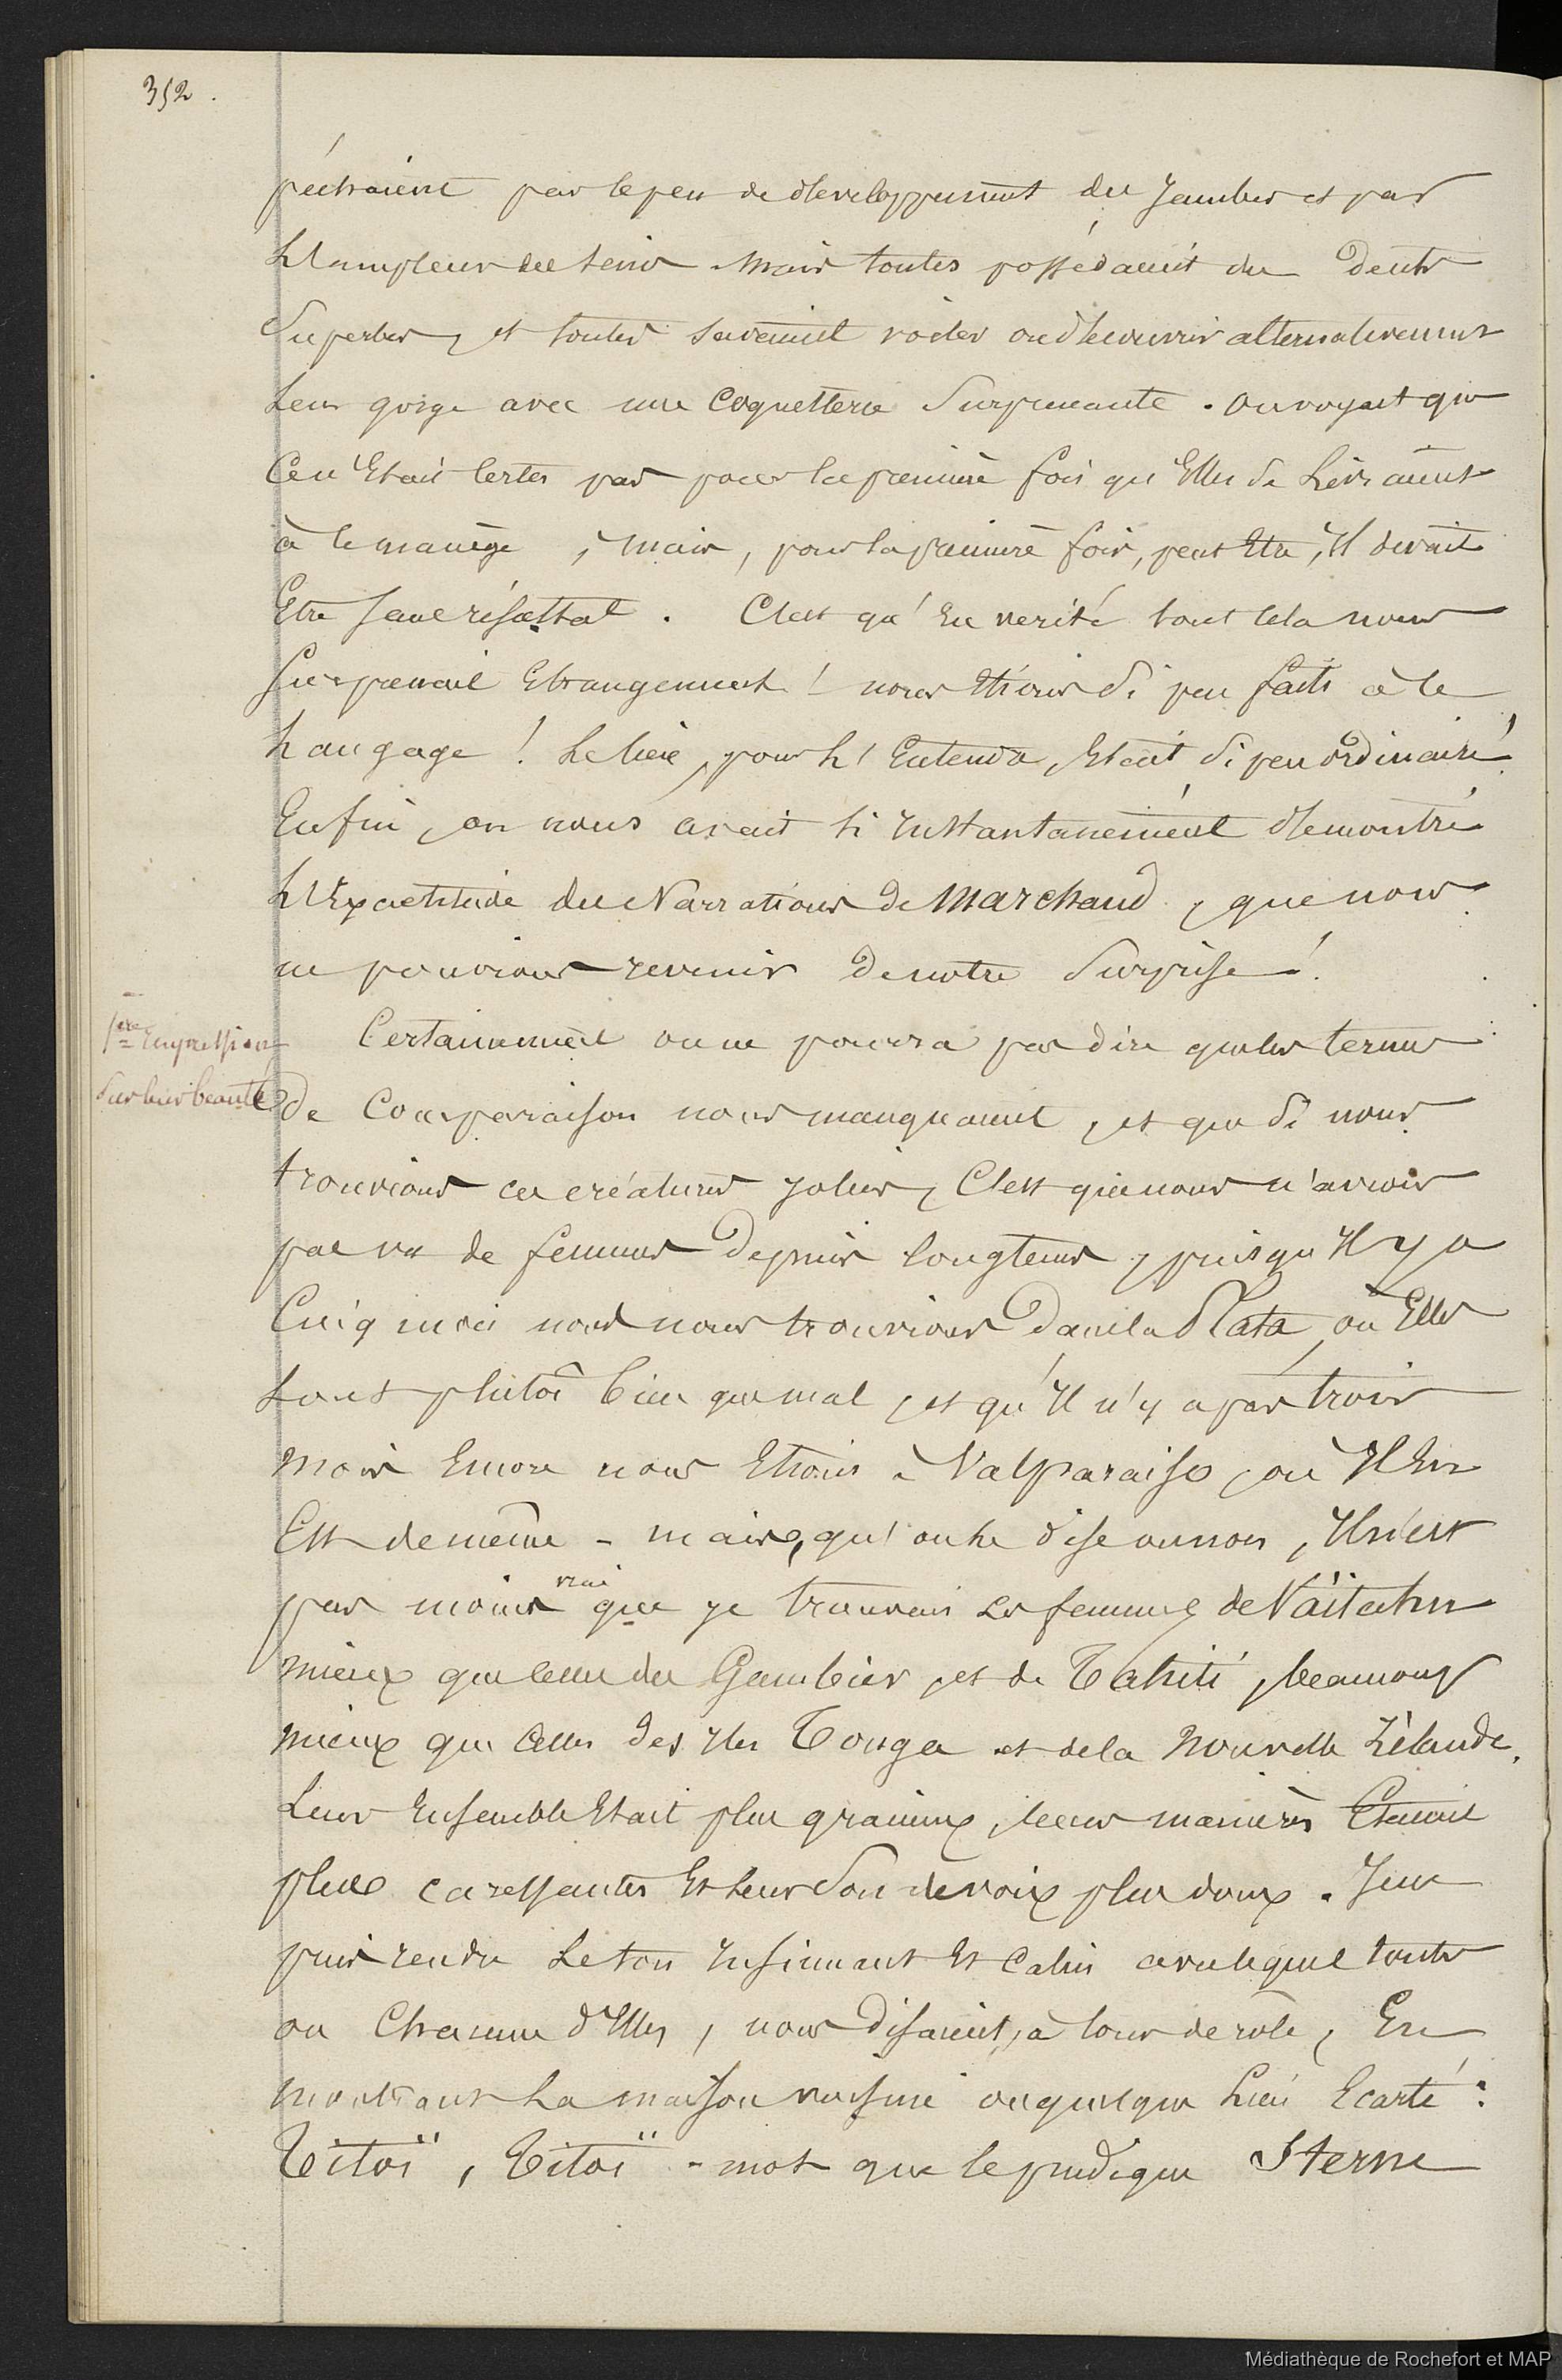 352.
péchaient par le peu de développement des Jambes et par
L'ampleur des seins - mais toutes possédaient des Dents
Superbes, et toutes savaient voiler ou découvrir alternativement
Leur gorge avec une Coquetterie Surprenante. on voyait que
Ce n'Etait Certes pas pour la première fois qu'Elles se Livraient
à ce manège, mais, pour la première fois, peut Etre, Il devait
Etre sans résultat. C'est qu'en verité tout cela nous
surprenait Etrangement ! nous Etions si peu faits à ce
Langage ! Le lieu, pour L'Entendre, Etait si peu ordinaire !
Enfin, on nous avait si Instantanément démontré
L'Exactitude des Narrations de Marchand, que nous
ne pouvions revenir de notre Surprise !
1ère Impression
Sur leur beauté
Certainement on ne pourra pas dire que les termes
de Comparaison nous manquaient, et que si nous
trouvions ces créatures Jolies, C'est que nous n'avions
pas vu de femmes Depuis longtems, puisqu'Il y a
Cinq mois nous nous trouvions Dans la Plata, où Elles
sont plutôt bien que mal, et qu'Il n'y a pas trois
mois Encore nous Etions à Valparaiso, où Il En
Est de même - mais, qu'on Le dise ou non, Il n'est
pas moins vrai que Je trouvais Les femmes de Vaïtahu
mieux que celles des Gambier, et de Tahiti, beaucoup
mieux que Celles des Iles Tonga et de la Nouvelle Zélande.
Leur Ensemble Etait plus gracieux, leurs manières Etaient
plus caressantes Et Leur Son de voix plus doux. Je ne
puis rendre Le ton Insinuant Et Calin avec lequel toutes
ou Chacune d'Elles, nous Disaient, à tour de rôle, En
montrant La maison voisine ou quelque Lieu Ecarté :
Titoï, Titoï - mot que le pudique Sterne
Médiathèque de Rochefort et MAP